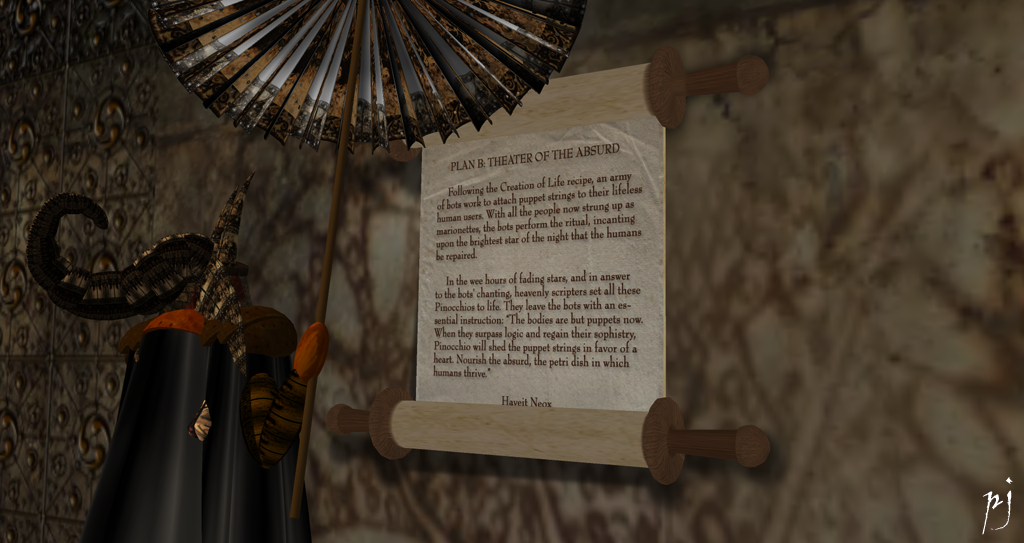 PLAN B: THEATER OF THE ABSURD
Following the Creation of Life recipe, an army
of bots work to attach puppet strings to their lifeless
human users. With all the people now strung up as
marionettes, the bots perform the ritual, incanting
upon the brightest star of the night that the humans
be repaired.
In the wee hours of fading stars, and in answer
to the bots' chanting, heavenly scripters set all these
Pinocchios to life. They leave the bots with an es-
sential instruction: "The bodies are but puppets now.
When they surpass logic and regain their sophistry,
Pinocchio will shed the puppet strings in favor of a
heart. Nourish the absurd, the petri dish in which
humans thrive."
Haveit Neox
pj